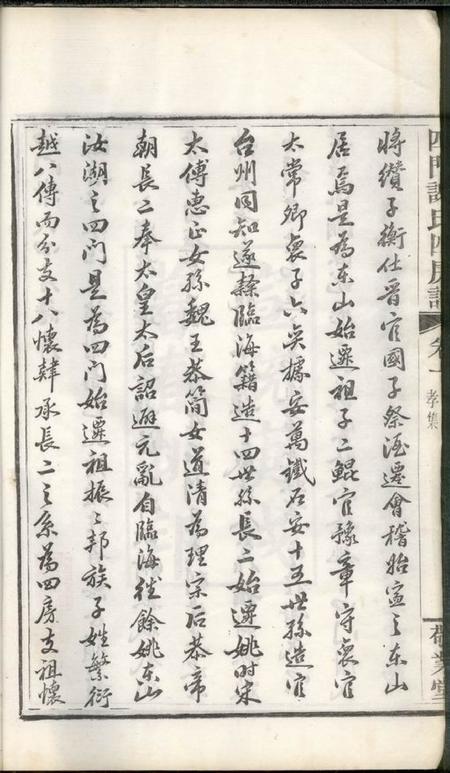 將纘子衡仕晉官國子祭酒遷會稽始寧之東山
居焉是為東山始遷祖子二鯤官豫章守裒官
太常卿裒子六奕據安萬鐵石安十五世孫造官
台州同知遂隸臨海籍造十四世孫長二始遷姚時宋
太傅惠正女孫魏王恭簡女道清為理宗后恭帝
朝長二奉太皇太后詔避元亂自臨海徙餘姚東山
汝湖之四門是為四門始遷祖振振邦族子姓繁衍
越八傳而分支十八懷韡承長二之系為四房支祖懷
四門謝氏四房譜 卷一 孝集